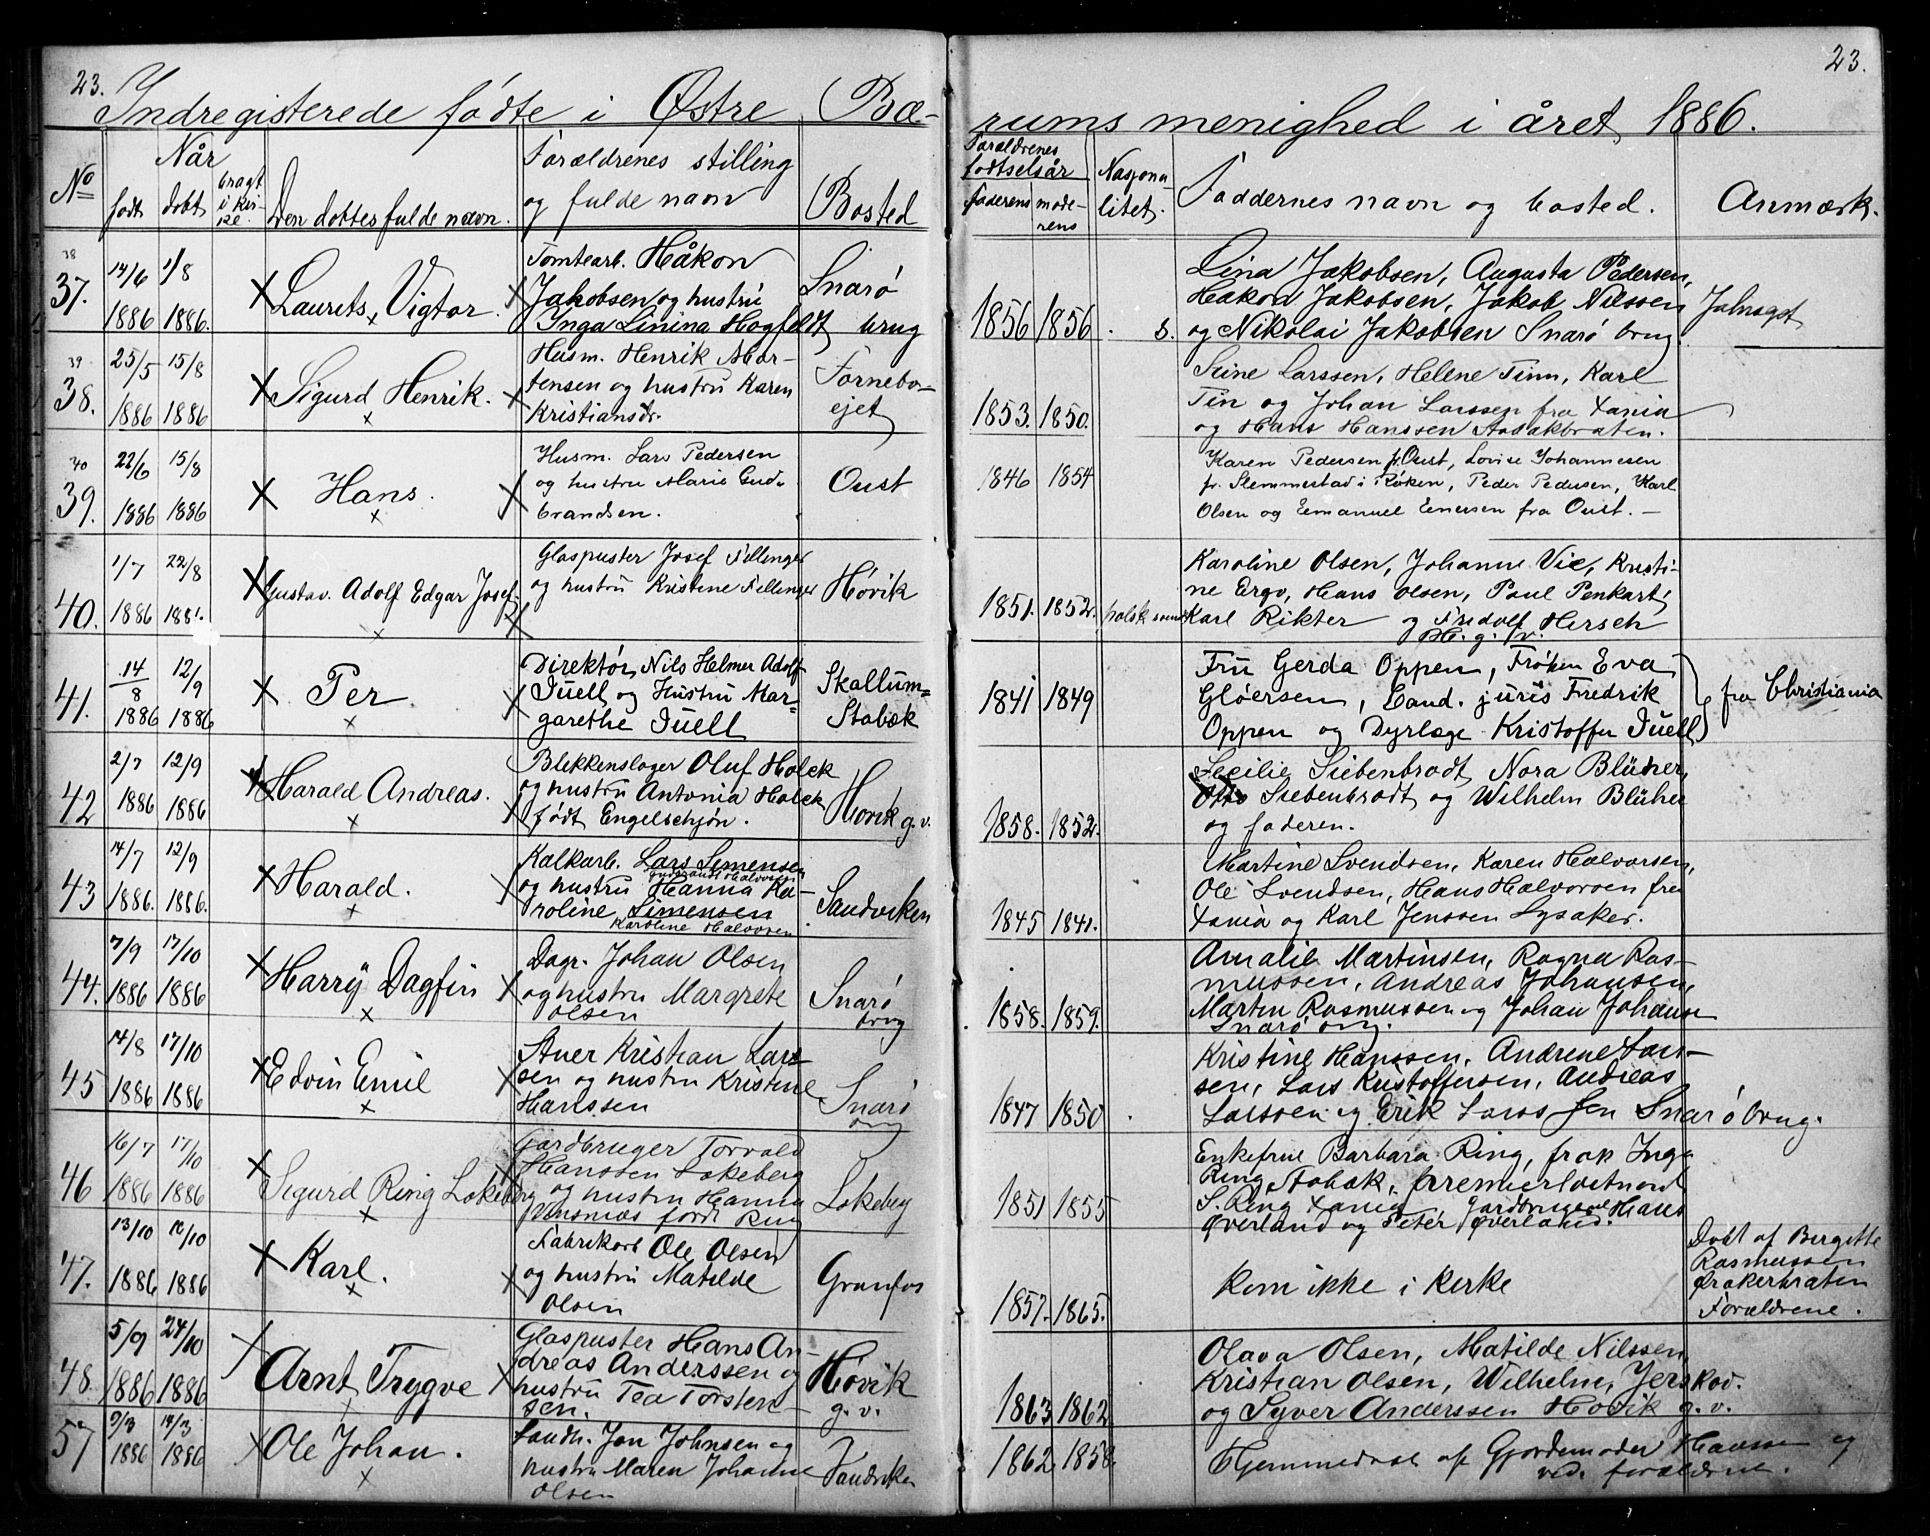 23.
Indregisterede fødte i Østre Bæ-
No
Når
født
døbt
bragt i kir-ke.
Den døbtes fulde navn.
Forældrenes stilling
og fulde navn
Bosted
38
37.
14/6 1/8
1886 1886.
Laurits Vigtor.
Tomtearb. Håkon
Jakobsen og hustru
Inga Linina Hogfeldt
Snarø
brug
39
38.
25/5 15/8
1886 1886
Sigurd Henrik.
Husm. Henrik Mar-
tensen og hustru Karen
Kristiansdr.
Fornebo-
ejet
40
39.
22/6 15/8
1886 1886
Hans.
Husm. Lars Pedersen
og hustru Marie Gud-
brandsen.
Oust
40.
1/7 22/8
1886
Gustav Adolf Edgar Josef.
Glaspuster Josef Fellinger
og hustru Kristene Fellinger
Høvik
41.
14/8 12/9
1886 1886
Per
Direktør Nils Helmer Adolf
Juell og Hustru Mar-
garethe Juell
Skallum=
Stabæk
42
2/7 12/9
1886 1886
Harald Andreas.
Blekkenslager Oluf Holck
og hustru Antonia Holck
født Engelschjøn.
Høvik g. v.
43
14/7 12/9
1886. 1886.
Harald.
Kalkarb. Lars Simensen
Halvorsen
og hustru Hanna Ka-
roline Simensen
Karoline Halvorsen
Sandviken
44.
7/9 17/10
1886 1886
Harry Dagfin
Dagr. Johan Olsen
og hustru Margrete
Olsen
Snarø
brug
45
14/8 17/10
1886 1886
Edvin Emil
Kristian Lars-
sen og hustru Kristine
Hanssen
Snarø
brug
46
16/7 17/10
1886 1886
Sigurd Ring Løkeberg
Gardbruger Torvald
Hanssen Løkeberg
og hustru Hanna
født Ring
Løkeberg
47.
13/10
1886 1886
Karl.
Fabrikarb Ole Olsen
og hustru Matilde
Olsen
Granfos
48.
5/9 24/10
1886 1886
Arnt Trygve
Glaspuster Hans An-
dreas Anderssen og
hustru Tea Torsten-
sen.
Høvik
g. v.
57
9/3 14/3
1886 1886
Ole Johan.
Jon Johnsen og
hustru Maren Johanne
Olsen
Sandviken
23.
rums menighed i året 1886.
Forældrenes
fødtselsår
faderens
mode-
rens
Nasjona-
litet.
Faddernes navn og bosted.
Anmærk.
1856 1856 s.
Lina Jakobsen, Augusta Pedersen,
Håkon Jakobsen, Jakob Nilssen
og Nikolai Jakobsen Snarø brug.
1853. 1850.
Stine Larssen, Helene Finn, Karl
Fin og Johan Larssen fra Xania
og Hans Hanssen
1846 1854
Karen Pedersen fr. Oust, Lovise Johannesen
fr. Slemmestad i Røken, Peder Pedersen, Karl
Olsen og Emanuel Enersen fra Oust.
1851. 1852.
Karoline Olsen, Johanne Vie, Kristi-
ne Ergo, Hans Olsen, Paul Penkart,
Karl Rikter og Fridolf Hersch
1841 1849
Fru Gerda Oppen, Frøken Eva
Gløersen, Cand. juris Fredrik
Oppen og Dyrlæge Kristoffer Juell
fra Christiania
1858. 1852.
Cecilie Siebenbrodt, Nora Blüher,
Otto Siebenbrodt og Wilhelm Blüher
og faderen.
1845 1841.
Martine Svendsen, Karen Halvorsen,
Ole Svendsen, Hans Halvorsen fra
Xania og Karl Jenssen Lysaker.
1858. 1859.
Amalie Martinsen, Ragna Ras-
mussen, Andreas Johansen,
Martin Rasmussen og Johan Johansen
Snarø brug.
1847 1850
Kristine Hanssen, Andrene Lars-
sen, Lars Kristoffersen, Andreas
Larssen og Erik Larssen Snarø brug.
1851 1855
Enkefrue Barbara Ring, frøk Inga
Ring Stabæk, premierløitnant
S. Ring Xania, Gardbrugerne Hans
Øverland og Peter Øverland.
1857. 1865.
Kom ikke i kirke
Døbt af Bergitte
Rasmussen
Forældrene.
1863 1862
Olava Olsen, Matilde Nilssen,
Kristian Olsen, Wilhelm Jerskov.
og Syver Anderssen Høvik g. v.
1862 1858.
Hjemmedøbt af Gjordemoder Hanssen og
ved forældrene.